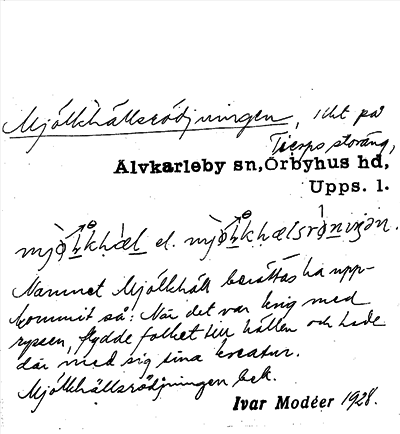 Mjölkhällsrödjningen, i kt på
Tierps storäng,
Älvkarleby sn, Örbyhus hd,
Upps. l.
el.
Namnet Mjölkhäll berättas ha upp-
kommit så: När det var krig med
ryssen, flydde folket till hällen och hade
där med sig sina kreatur.
Mjölkhällsrödjningen bek.
Ivar Modéer 1928.